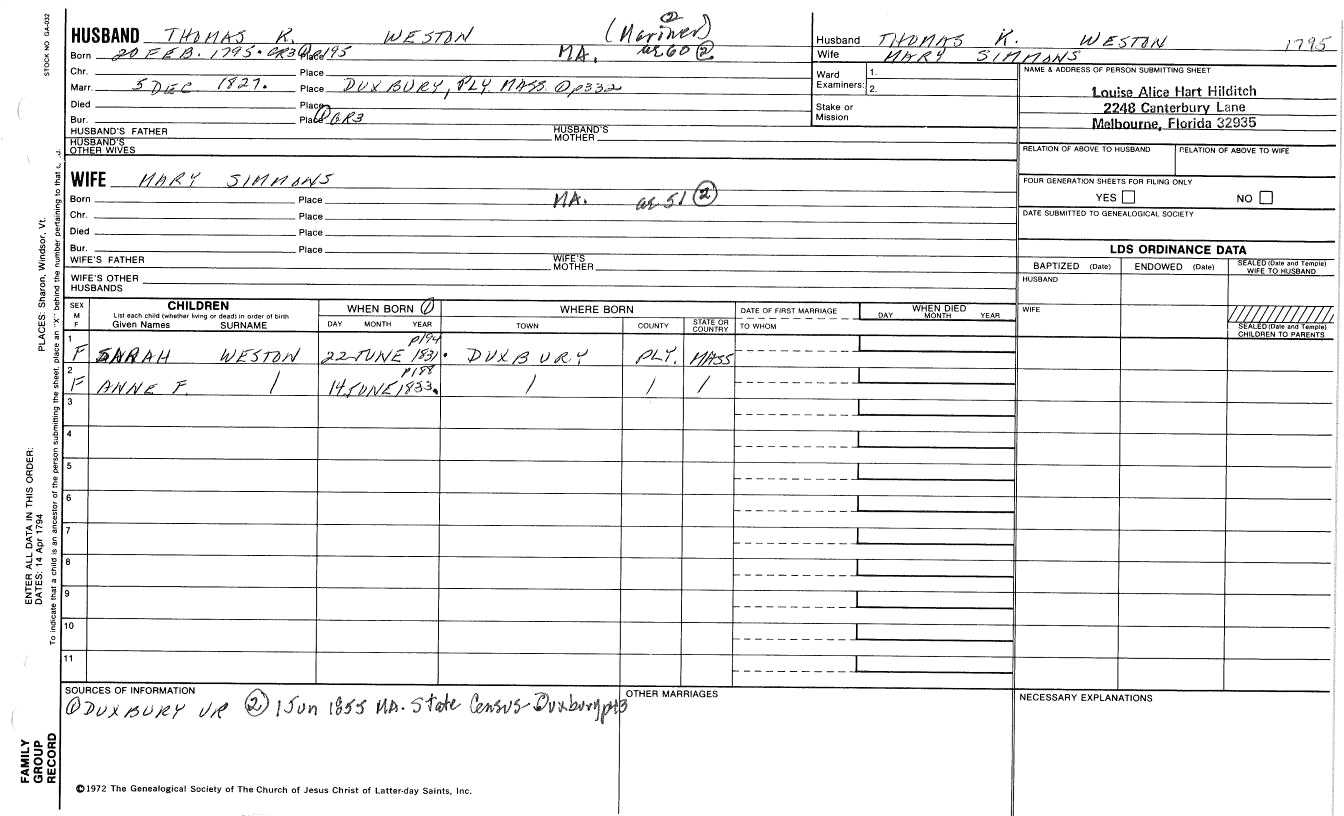 STOCK NO GA-032
HUSBAND THOMAS K. WESTON (Mariner) ②
Born 20 FEB. 1795. GR3 ① p195 Place MA. ae 60 ②
Chr. Place
Marr. 5 DEC 1827. Place DUXBURY, PLY MASS ① p332
Died Place
Bur. Place ① GR3
HUSBAND'S FATHER HUSBAND'S MOTHER
HUSBAND'S OTHER WIVES
Husband THOMAS K. WESTON 1795
Wife MARY SIMMONS
Ward Examiners: 1.
2.
Stake or Mission
NAME & ADDRESS OF PERSON SUBMITTING SHEET
Louise Alice Hart Hilditch
2248 Canterbury Lane
Melbourne, Florida 32935
RELATION OF ABOVE TO HUSBAND RELATION OF ABOVE TO WIFE
FOUR GENERATION SHEETS FOR FILING ONLY
YES NO
DATE SUBMITTED TO GENEALOGICAL SOCIETY
WIFE MARY SIMMONS
Born Place MA. ae 51 ②
Chr. Place
Died Place
Bur. Place
WIFE'S FATHER WIFE'S MOTHER
WIFE'S OTHER HUSBANDS
LDS ORDINANCE DATA
BAPTIZED (Date) ENDOWED (Date) SEALED (Date and Temple) WIFE TO HUSBAND
HUSBAND
WIFE
SEALED (Date and Temple) CHILDREN TO PARENTS
SEX M F
CHILDREN
List each child (whether living or dead) in order of birth
Given Names SURNAME
WHEN BORN ①
DAY MONTH YEAR
WHERE BORN
TOWN COUNTY STATE OR COUNTRY
DATE OF FIRST MARRIAGE
TO WHOM
WHEN DIED
DAY MONTH YEAR
1 F SARAH WESTON 22 JUNE 1831. p194 DUXBURY PLY. MASS
2 F ANNE F. / 14 JUNE 1833. p188 / / /
3
4
5
6
7
8
9
10
11
SOURCES OF INFORMATION
① DUXBURY VR ② 1 Jun 1855 MA. State Census Duxbury
OTHER MARRIAGES
NECESSARY EXPLANATIONS
©1972 The Genealogical Society of The Church of Jesus Christ of Latter-day Saints, Inc.
FAMILY GROUP RECORD
ENTER ALL DATA IN THIS ORDER:
DATES: 14 Apr 1794
PLACES: Sharon, Windsor, Vt.
To indicate that a child is an ancestor of the person submitting the sheet, place an "X" behind the number pertaining to that